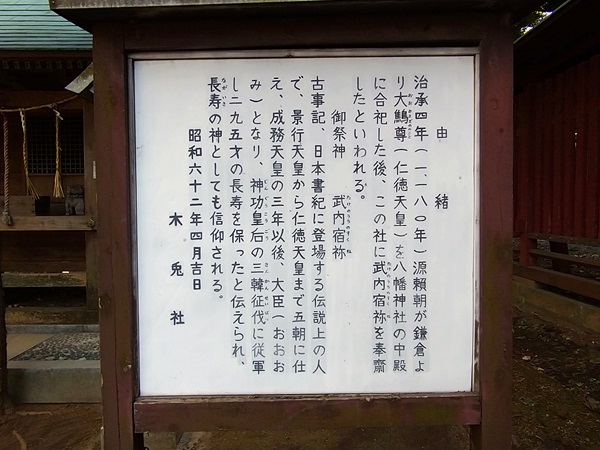 由緒
治承四年(一、一八〇年)源頼朝が鎌倉よ
り大鷦尊(仁徳天皇)を八幡神社の中殿
に合祀した後、この社に武内宿祢を奉齋
したといわれる。
御祭神 武内宿祢
古事記、日本書紀に登場する伝説上の人
で、景行天皇から仁徳天皇まで五朝に仕
え、成務天皇の三年以後、大臣(おおお
み)となり、神功皇后の三韓征伐に従軍
し二九五才の長寿を保ったと伝えられ、
長寿の神としても信仰される。
昭和六十二年四月吉日
木兎社